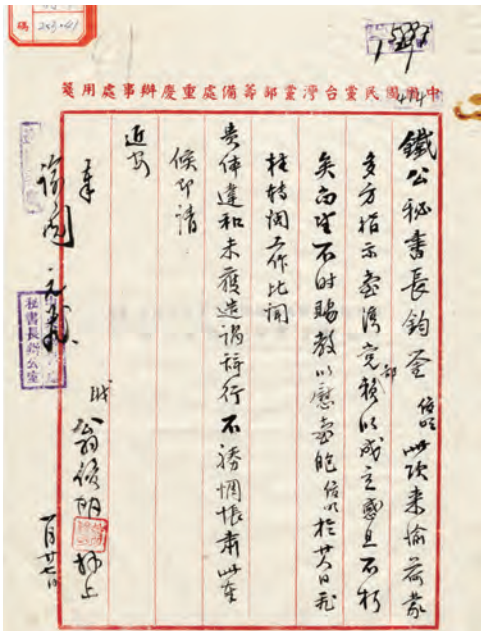 中國國民黨台灣黨部籌備處重慶辦事處用箋
鐵公秘書長鈞鑒 俊明此次來渝荷蒙
多方指示臺灣黨部賴以成立感且不朽
矣尚望不時賜教以慰臺胞俊明於廿八日飛
桂轉閩工作比聞
貴体違和未獲造謁辭行不勝惆悵肅此奉
候即請
近安
職 翁俊明 叩上 一月廿七日
奉
秘書長辦公室
碼